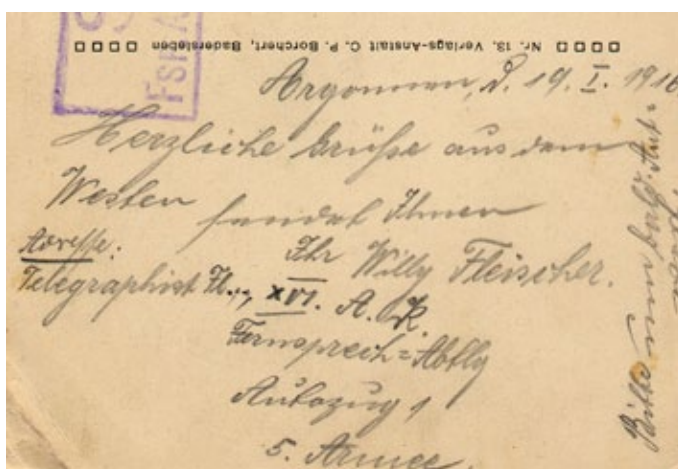 Nr. 13. Verlags-Anstalt C. P. Borchert, Badersleben
Argonnen, d. 19. I. 1916
Herzliche Grüße aus dem
Westen sendet Ihnen
Ihr Willy Fleischer.
Adresse:
Telegraphist Fl., XVI. A. K.
Fernsprech=Abtlg
Autozug 1
5. Armee.
Bitte um bald. Ant=